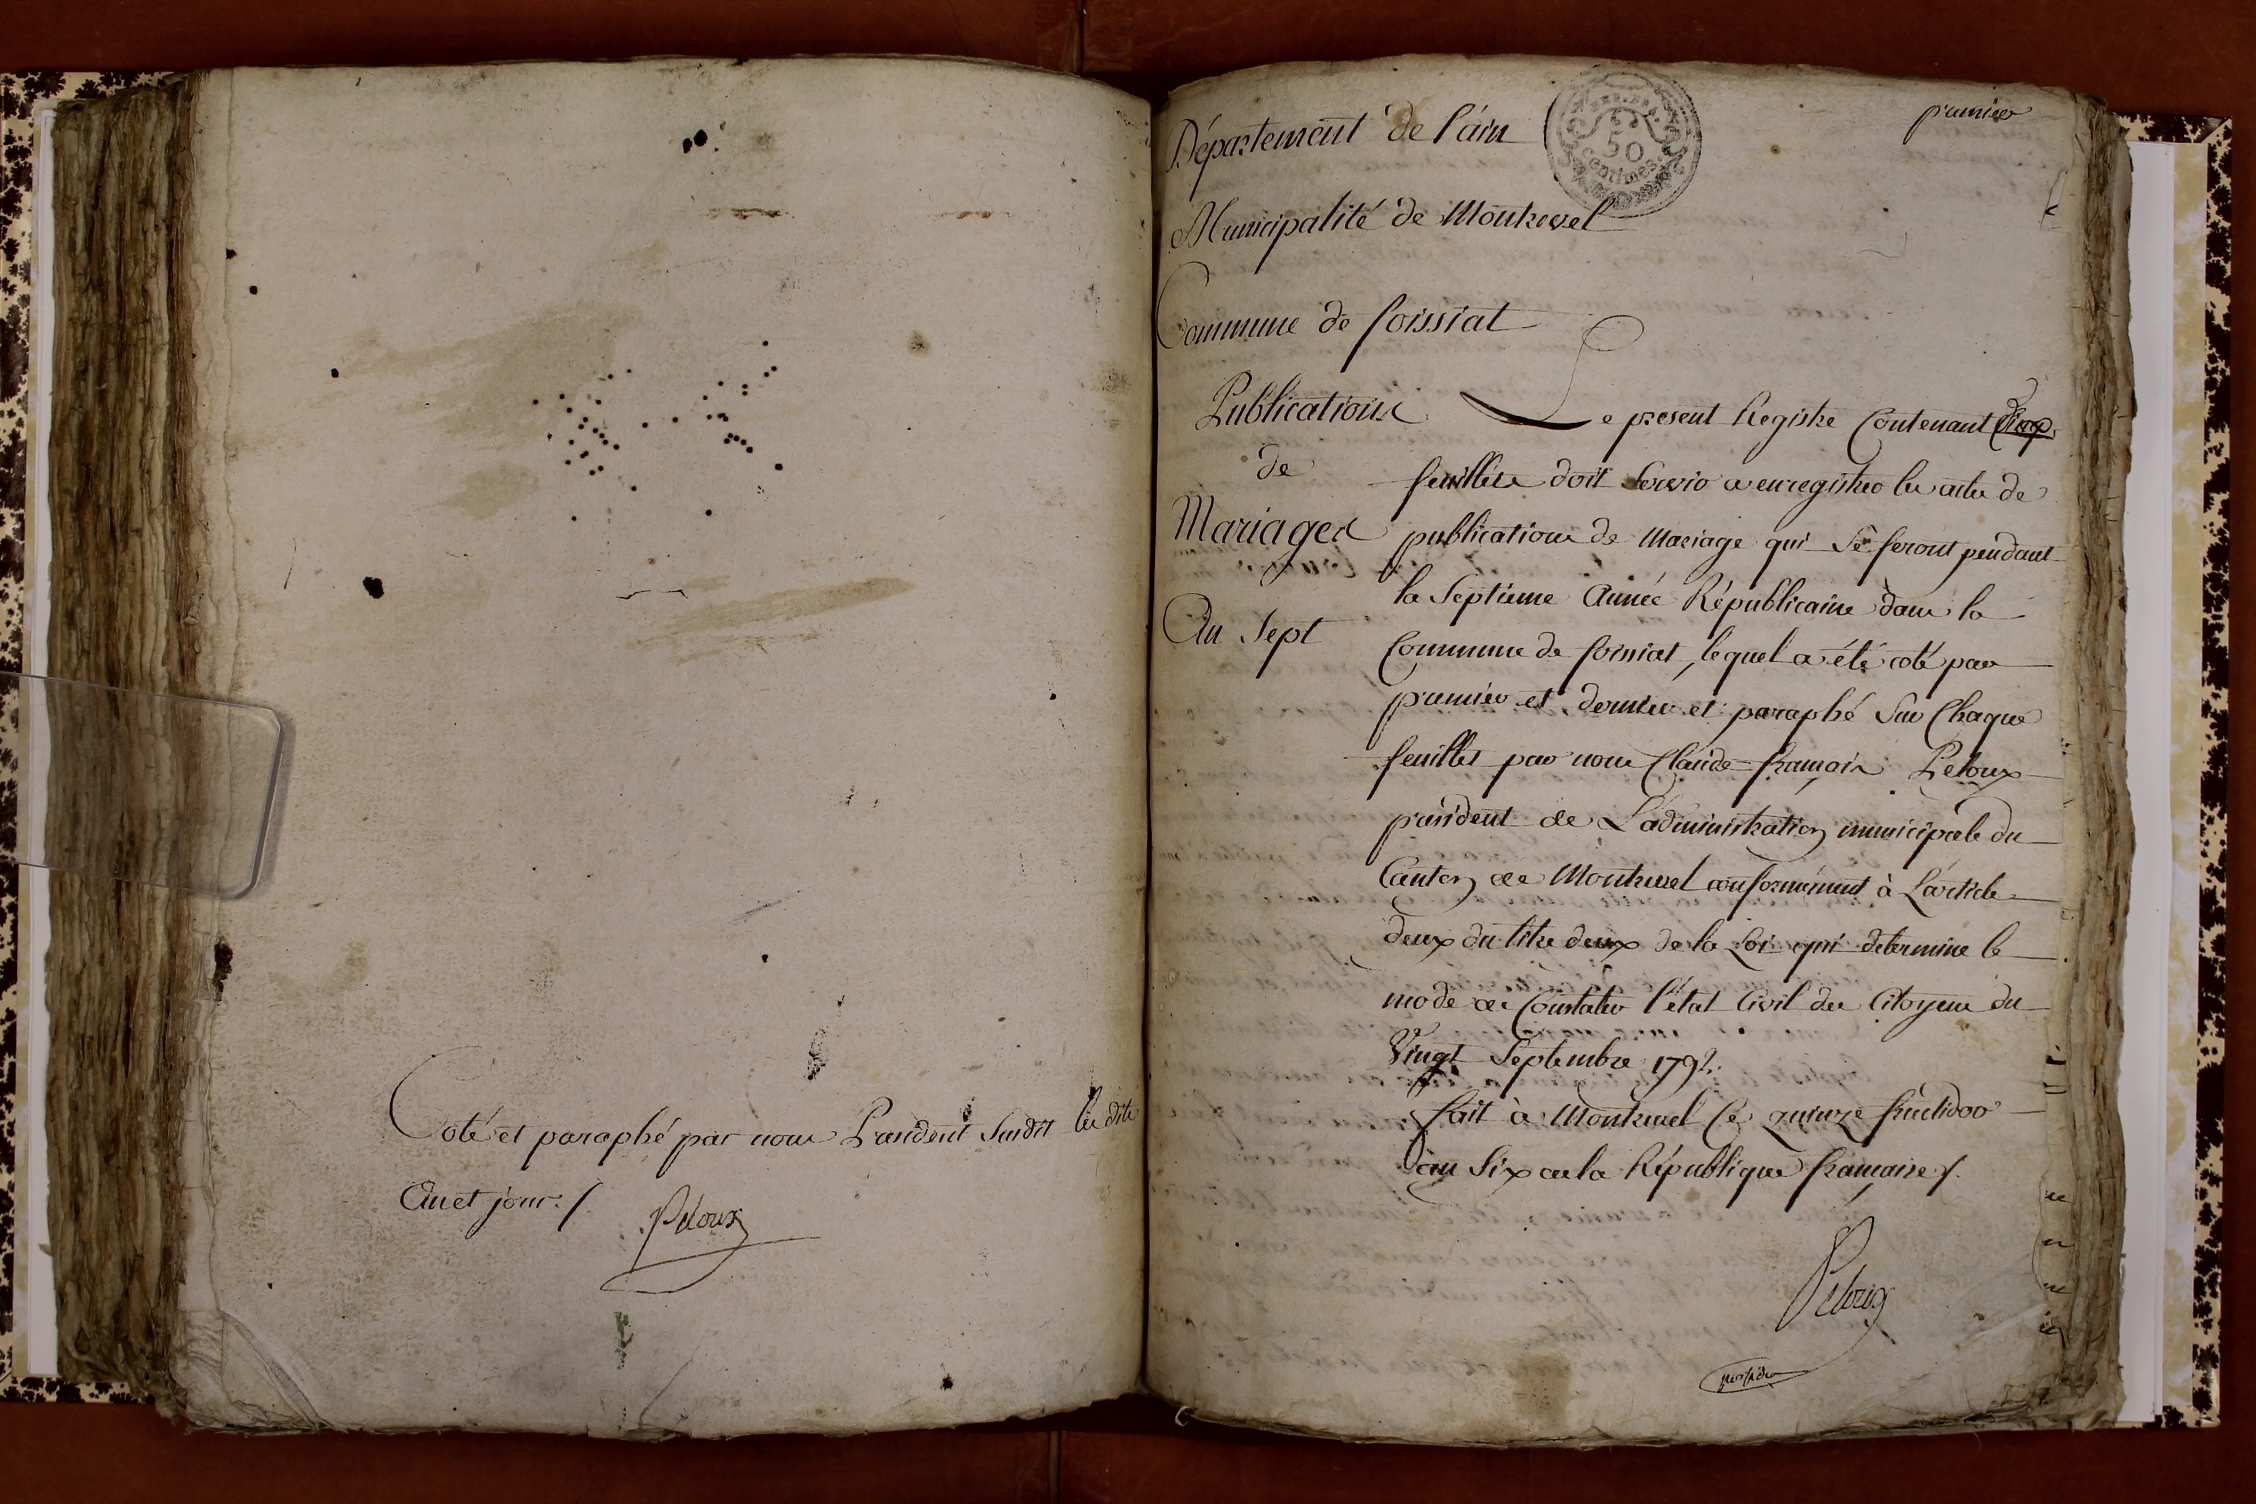 Coté et paraphé par nous Président Susdit les dits
An et jour ./.
Péloux
premier
Département de l'ain
50
Centimes
Municipalité de Montrevel
Commune de foissiat
Publications
de
Mariages
An Sept
Le présent Registre Contenant
feuillets doit Servir a enregistrer les actes de
publications de Mariage qui Se feront pendant
la Septieme Année Républicaine dans la
Commune de foissiat, lequel a été coté par
premier et dernier et paraphé Sur Chaque
feuillet par nous Claude françois Péloux
président de L'administration municipale du
Canton de Montrevel conformément à L'article
deux du titre deux de la Loi qui détermine le
mode de Constater l'état Civil des Citoyens du
Vingt Septembre 1792.
fait à Montrevel Ce quinze fructidor
an Six de la République française ./.
Péloux